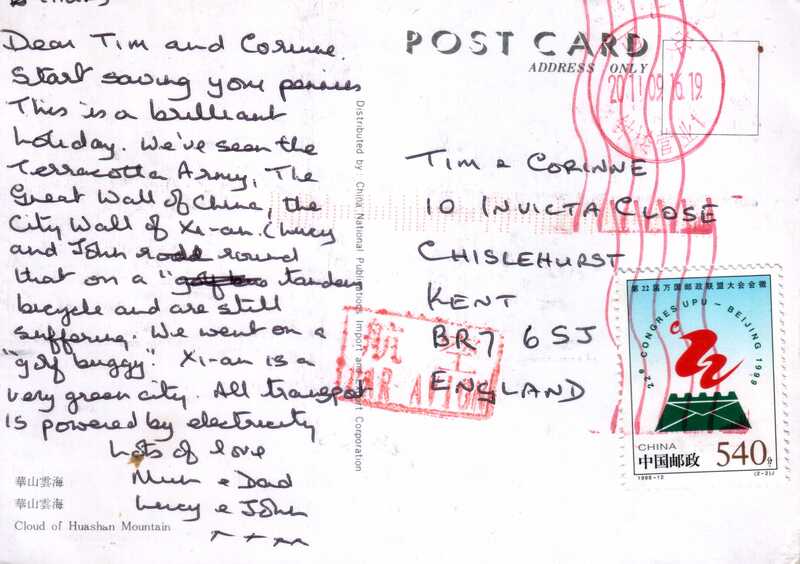 Dear Tim and Corinne.
Start saving your pennies
This is a brilliant
holiday. We've seen the
Terracotta Army, The
Great Wall of China, the
City Wall of Xi-an. (Lucy
and John rode round
that on a " tandem
bicycle and are still
suffering. We went on a
"golf buggy". Xi-an is a
very green city. All transport
is powered by electricity
Lots of love
Mum & Dad
Lucy & John
華山雲海
華山雲海
Cloud of Huashan Mountain
Distributed by China National Publications Import and Export Corporation
POST CARD
ADDRESS ONLY
2011.09.16.19
TIM & CORINNE
10 INVICTA CLOSE
CHISLEHURST
KENT
BR7 6SJ
ENGLAND
航空
PAR AVION
第22届万国邮政联盟大会会徽
22e CONGRES UPU - BEIJING 1999
CHINA
中国邮政 540分
1998-12 (2-2)J